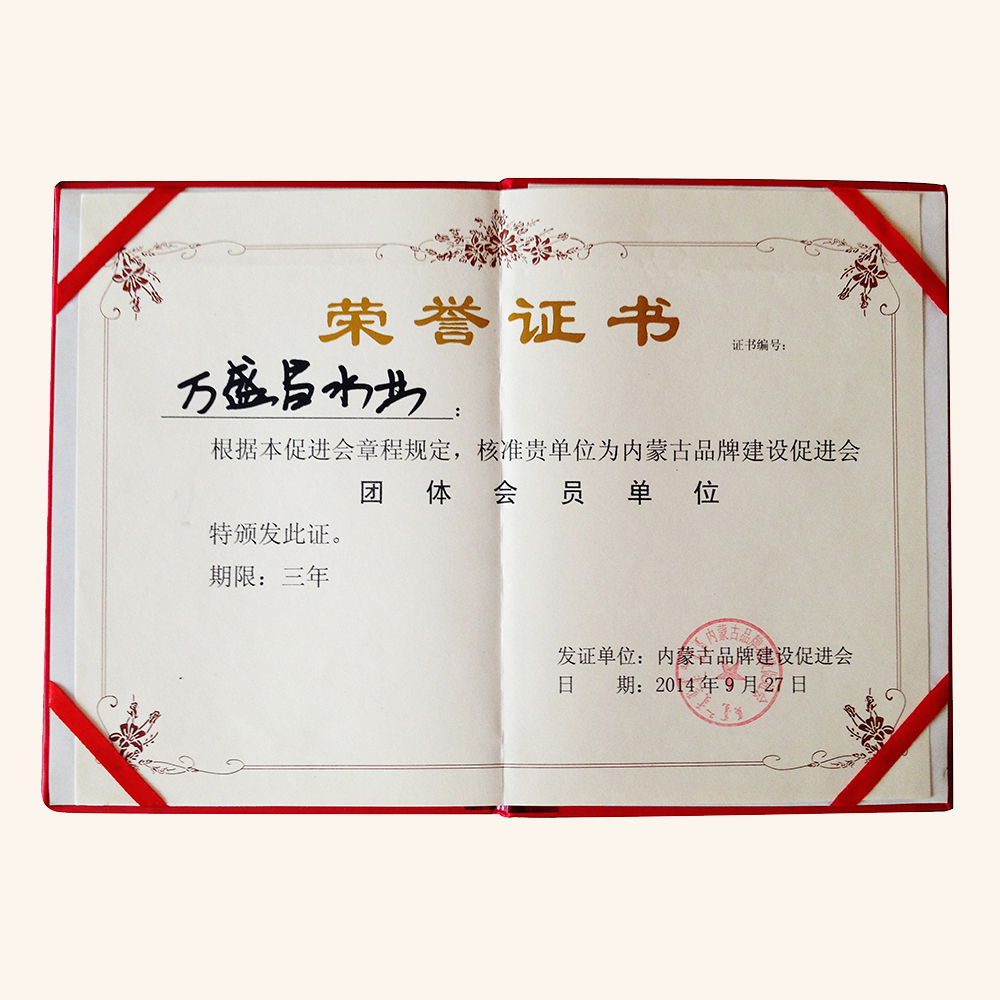 荣誉证书
证书编号：
万盛昌水业：
根据本促进会章程规定，核准贵单位为内蒙古品牌建设促进会
团体会员单位
特颁发此证。
期限：三年
发证单位：内蒙古品牌建设促进会
日　　期：2014年9月27日
内蒙古品牌建设促进会